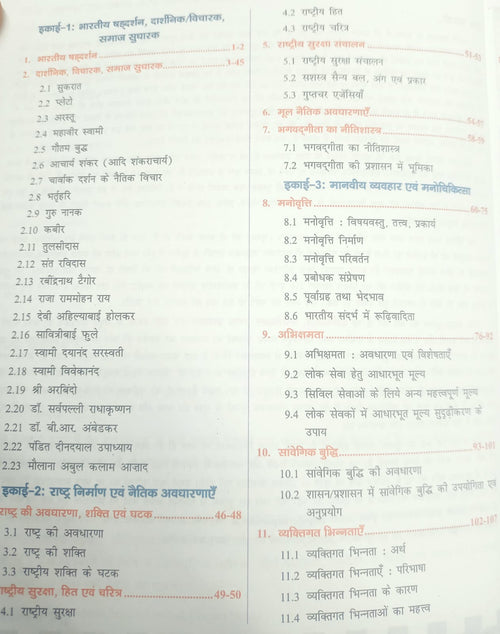 इकाई-1: भारतीय षड्दर्शन, दार्शनिक/विचारक,
समाज सुधारक
1. भारतीय षड्दर्शन 1-2
2. दार्शनिक, विचारक, समाज सुधारक 3-45
2.1 सुकरात
2.2 प्लेटो
2.3 अरस्तू
2.4 महावीर स्वामी
2.5 गौतम बुद्ध
2.6 आचार्य शंकर (आदि शंकराचार्य)
2.7 चार्वाक दर्शन के नैतिक विचार
2.8 भर्तृहरि
2.9 गुरु नानक
2.10 कबीर
2.11 तुलसीदास
2.12 संत रविदास
2.13 रबींद्रनाथ टैगोर
2.14 राजा राममोहन राय
2.15 देवी अहिल्याबाई होलकर
2.16 सावित्रीबाई फुले
2.17 स्वामी दयानंद सरस्वती
2.18 स्वामी विवेकानंद
2.19 श्री अरबिंदो
2.20 डॉ. सर्वपल्ली राधाकृष्णन
2.21 डॉ. बी.आर. अंबेडकर
2.22 पंडित दीनदयाल उपाध्याय
2.23 मौलाना अबुल कलाम आजाद
इकाई-2: राष्ट्र निर्माण एवं नैतिक अवधारणाएँ
राष्ट्र की अवधारणा, शक्ति एवं घटक 46-48
3.1 राष्ट्र की अवधारणा
3.2 राष्ट्र की शक्ति
3.3 राष्ट्रीय शक्ति के घटक
राष्ट्रीय सुरक्षा, हित एवं चरित्र 49-50
4.1 राष्ट्रीय सुरक्षा
4.2 राष्ट्रीय हित
4.3 राष्ट्रीय चरित्र
5. राष्ट्रीय सुरक्षा संचालन 51-53
5.1 राष्ट्रीय सुरक्षा संचालन
5.2 सशस्त्र सैन्य बल, अंग एवं प्रकार
5.3 गुप्तचर एजेंसियाँ
6. मूल नैतिक अवधारणाएँ 54-57
7. भगवद्गीता का नीतिशास्त्र 58-59
7.1 भगवद्गीता का नीतिशास्त्र
7.2 भगवद्गीता की प्रशासन में भूमिका
इकाई-3: मानवीय व्यवहार एवं मनोचिकित्सा
8. मनोवृत्ति 60-75
8.1 मनोवृत्ति : विषयवस्तु, तत्त्व, प्रकार्य
8.2 मनोवृत्ति निर्माण
8.3 मनोवृत्ति परिवर्तन
8.4 प्रबोधक संप्रेषण
8.5 पूर्वाग्रह तथा भेदभाव
8.6 भारतीय संदर्भ में रूढ़िवादिता
9. अभिक्षमता 76-92
9.1 अभिक्षमता : अवधारणा एवं विशेषताएँ
9.2 लोक सेवा हेतु आधारभूत मूल्य
9.3 सिविल सेवाओं के लिये अन्य महत्त्वपूर्ण मूल्य
9.4 लोक सेवकों में आधारभूत मूल्य सुदृढ़ीकरण के
उपाय
10. सांवेगिक बुद्धि 93-101
10.1 सांवेगिक बुद्धि की अवधारणा
10.2 शासन/प्रशासन में सांवेगिक बुद्धि की उपयोगिता एवं
अनुप्रयोग
11. व्यक्तिगत भिन्नताएँ 102-107
11.1 व्यक्तिगत भिन्नता : अर्थ
11.2 व्यक्तिगत भिन्नताएँ : परिभाषा
11.3 व्यक्तिगत भिन्नता के कारण
11.4 व्यक्तिगत भिन्नताओं का महत्त्व